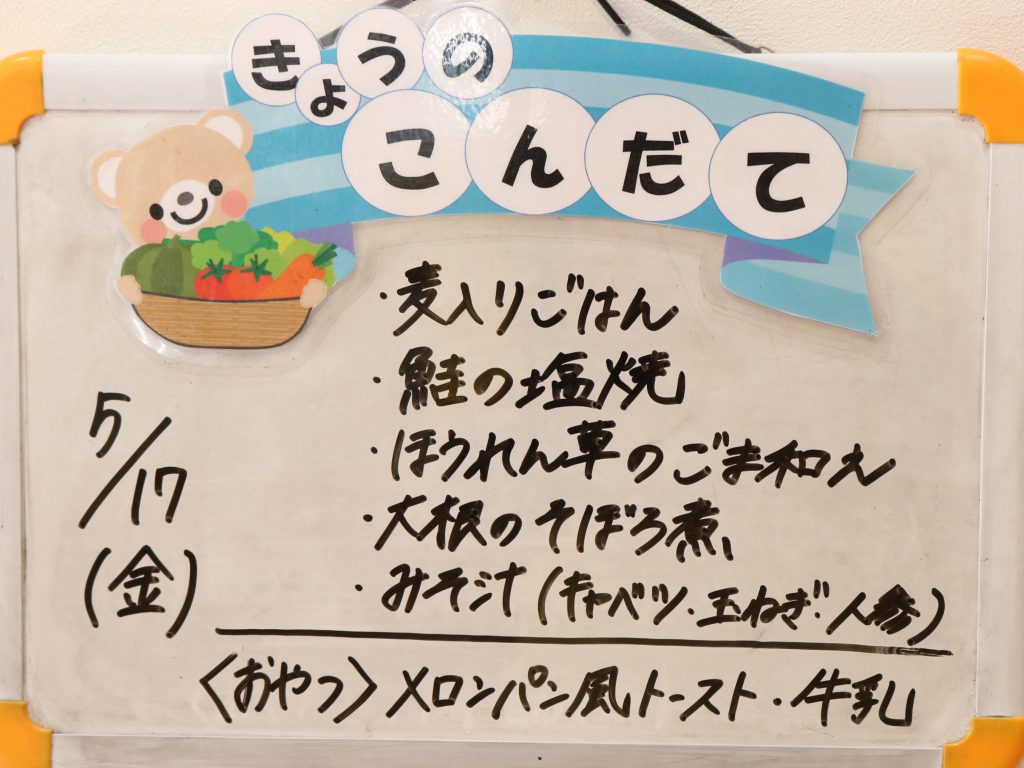 きょうの
こんだて
・麦入りごはん
・鮭の塩焼
・ほうれん草のごま和え
・大根のそぼろ煮
・みそ汁(キャベツ・玉ねぎ・人参)
5/17
(金)
〈おやつ〉メロンパン風トースト・牛乳